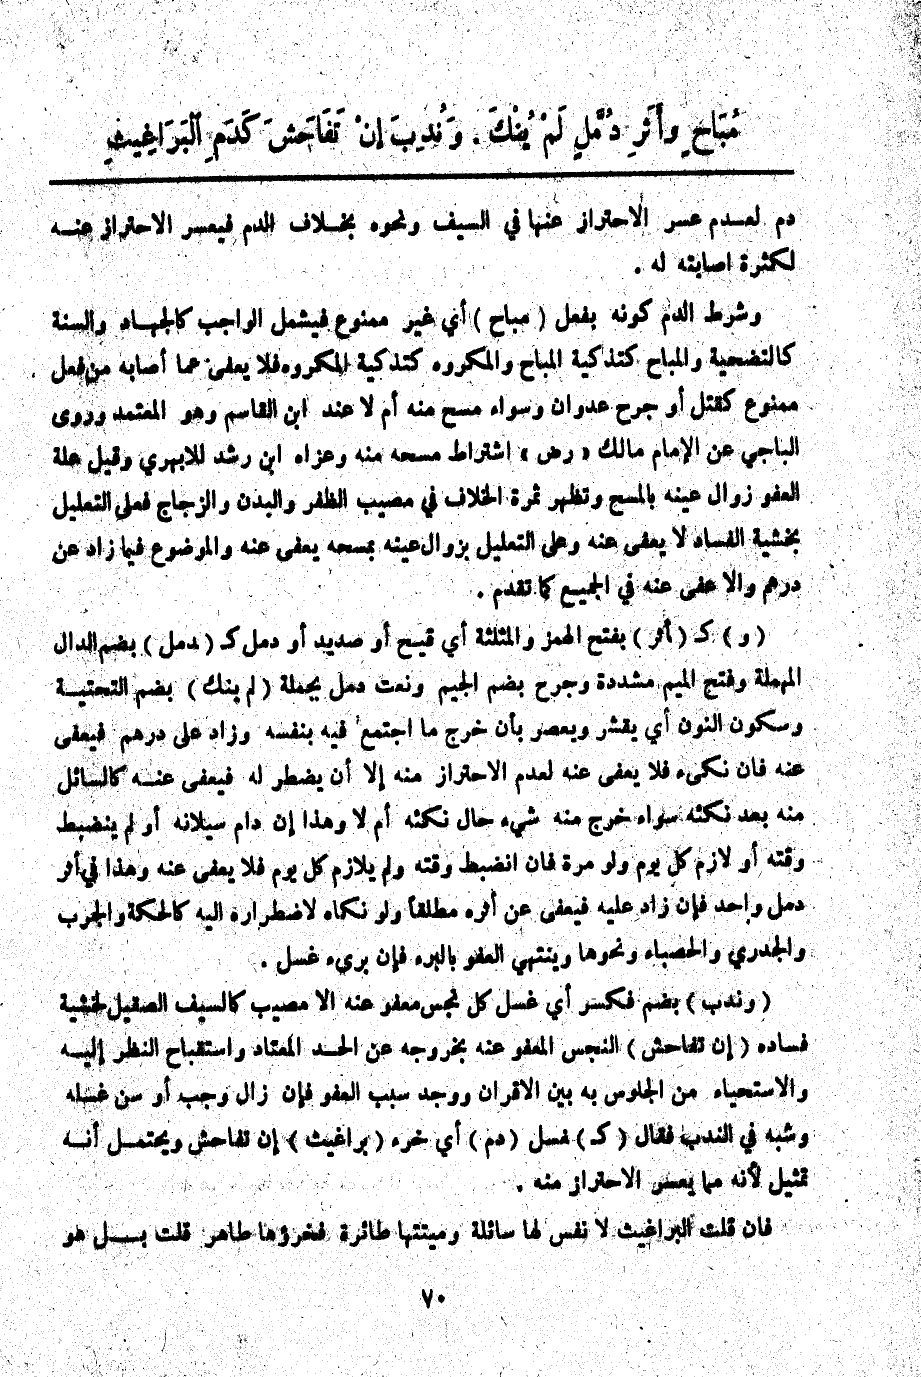 مُبَاحٍ وأَثَرِ دُمَّلٍ لَمْ يُنْكَ . وَنُدِبَ إِنْ تَفَاحَشَ كَدَمِ البَرَاغِيثِ
دم لعـدم عسر الاحتراز عنها في السيف ونحوه بخـلاف الدم فيعسر الاحتراز عنـه
لكثرة اصابته له .
وشرط الدم كونه بفعل ( مباح ) أي غير ممنوع فيشمل الواجب كالجهـاد والسنة
كالتضحية والمباح كتذكية المباح والمكروه كتذكية المكروه فلا يعفى عما أصابه من فعل
ممنوع كقتل أو جرح عدوان وسواء مسح منه أم لا عند ابن القاسم وهو المعتمد وروى
الباجي عن الإمام مالك « رض » اشتراط مسحه منه وعزاه ابن رشد للابهري وقيل علة
العفو زوال عينه بالمسح وتظهر ثمرة الخلاف في مصيب الظفر والبدن والزجاج فعلى التعليل
بخشية الفساد لا يعفى عنه وعلى التعليل بزوال عينه بمسحه يعفى عنه والموضوع فيما زاد عن
درهم والا عفى عنه في الجميع كما تقدم .
( و ) كـ ( أثر ) بفتح الهمز والمثلثة أي قيح أو صديد أو دمل كـ ( دمل ) بضم الدال
المهملة وفتح الميم مشددة وجرح بضم الجيم ونعت دمل بجملة ( لم ينك ) بضم التحتيـة
وسكون النون أي يقشر ويعصر بأن خرج ما اجتمع فيه بنفسه وزاد على درهم فيعفى
عنه فان نكىء فلا يعفى عنه لعدم الاحتراز منه إلا أن يضطر له فيعفى عنـه كالسائل
منه بعد نكئه سواء خرج منه شيء حال نكئه أم لا وهذا إن دام سيلانه أو لم ينضبط
وقته أو لازم كل يوم ولو مرة فان انضبط وقته ولم يلازم كل يوم فلا يعفى عنه وهذا في أثر
دمل واحد فإن زاد عليه فيعفى عن أثره مطلقاً ولو نكاه لاضطراره اليه كالحكة والجرب
والجدري والحصباء ونحوها وينتهي العفو بالبرء فإن برىء غسل .
( وندب ) بضم فكسر أي غسل كل نجس معفو عنه الا مصيب كالسيف الصقيل لخشية
فساده ( إن تفاحش ) النجس المعفو عنه بخروجه عن الحـد المعتاد واستقباح النظر إليـه
والاستحياء من الجلوس به بين الاقران ووجد سبب العفو فإن زال وجب أو سن غسله
وشبه في الندب فقال ( كـ ) غسل ( دم ) أي خرء ( براغيث ) إن تفاحش ويحتمـل أنـه
تمثيل لأنه مما يعسر الاحتراز منه .
فان قلت البراغيث لا نفس لها سائلة وميتتها طائرة فخرؤها طاهر قلت بـــل هو
٧٠